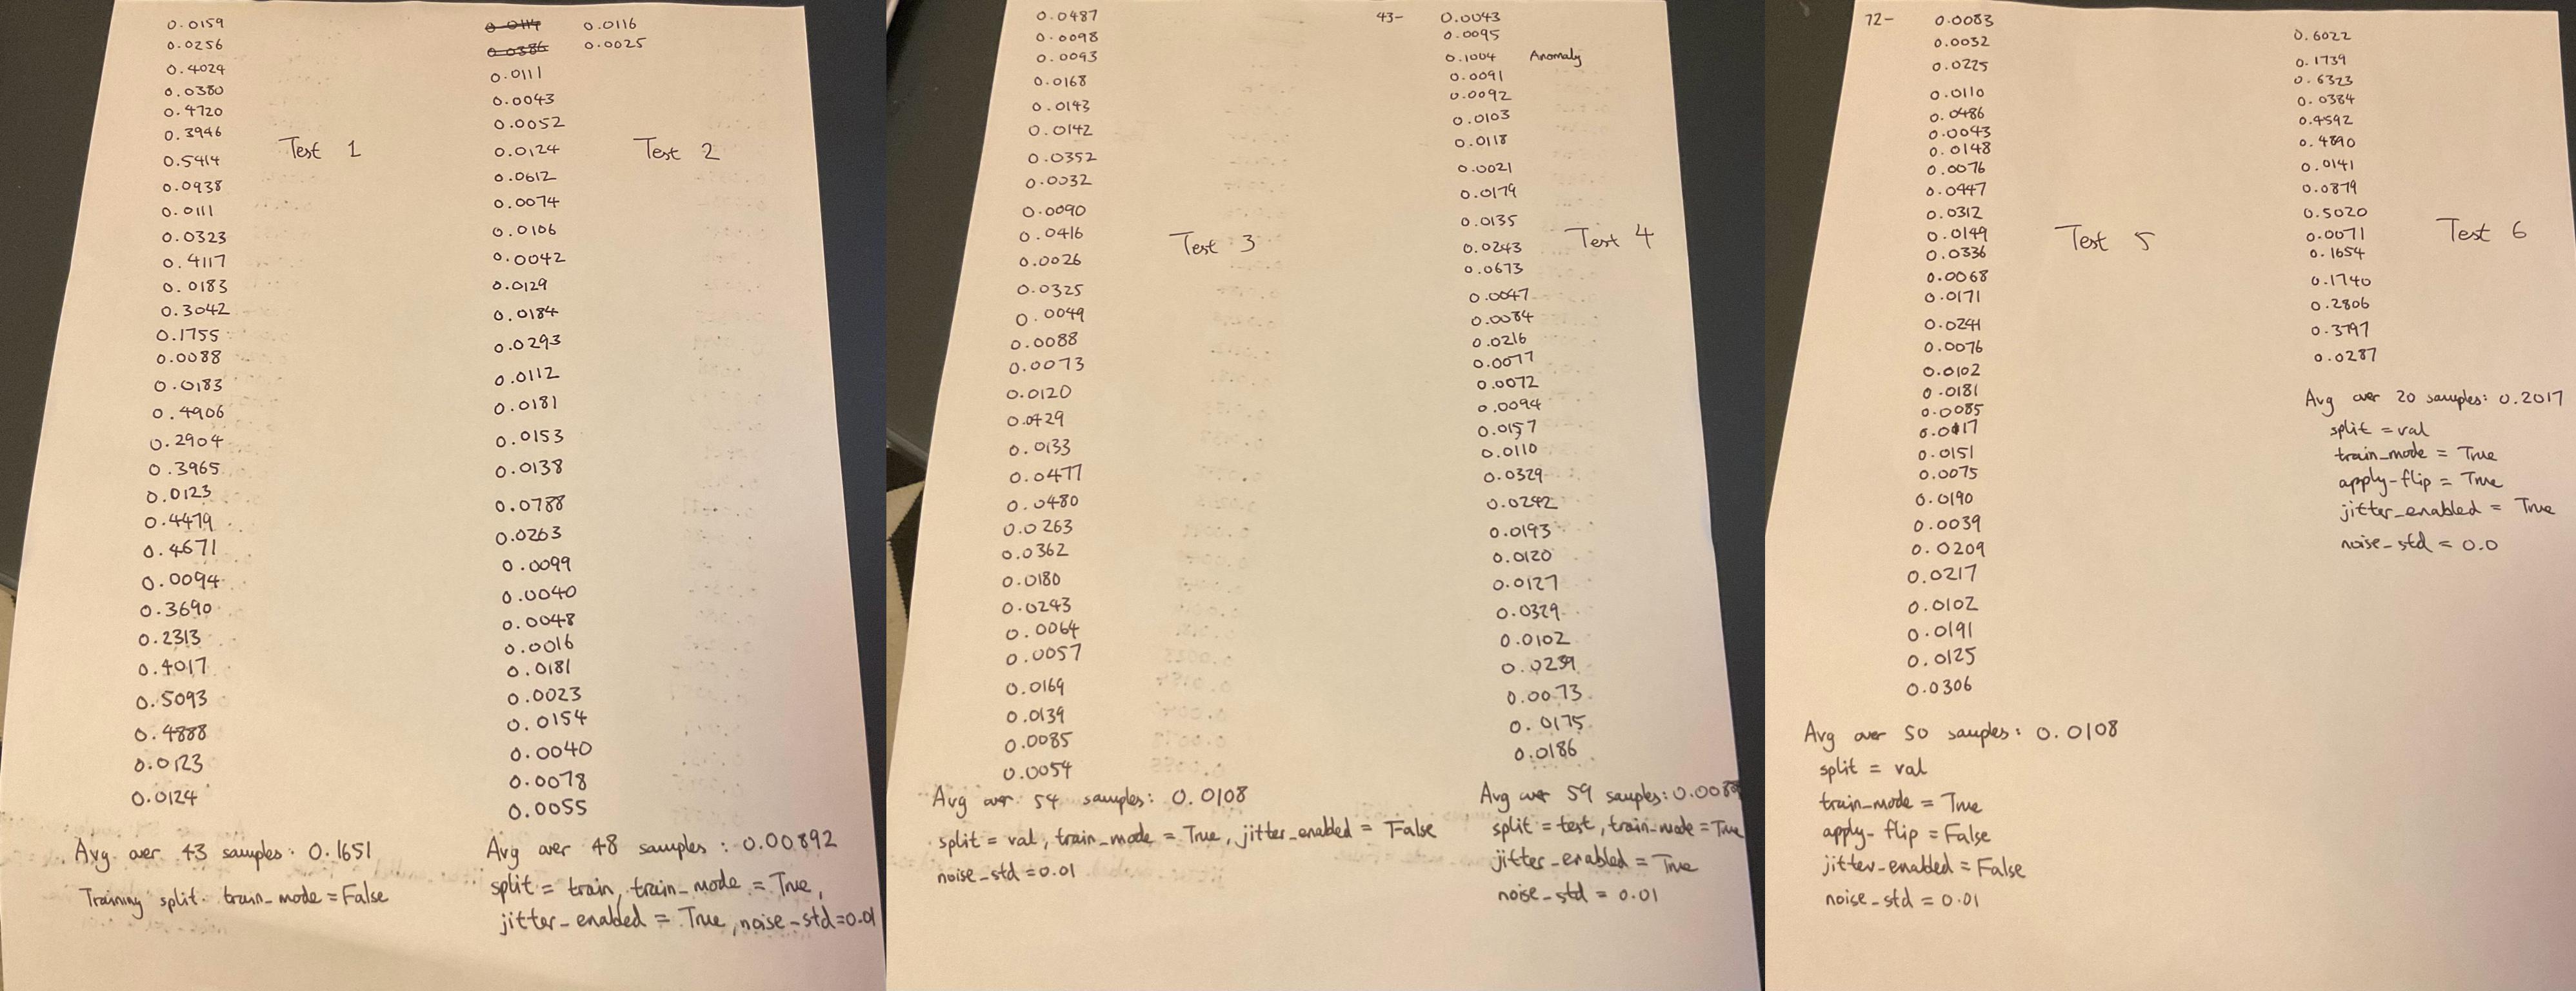 0.0159
0.0256
0.4029
0.0380
0.4720
0.3946
0.5414
0.0938
0.0111
0.0323
0.4117
0.0183
0.3042
0.1755
0.0088
0.0183
0.4906
0.2904
0.3965
0.0123
0.4479
0.4671
0.0094
0.3690
0.2313
0.4017
0.5093
0.4888
0.0123
0.0124
Test 1
Avg over 43 samples: 0.1651
Training split. train_mode = False
0.0114 0.0116
0.0386 0.0025
0.0111
0.0043
0.0052
0.0124
0.0612
0.0074
0.0106
0.0042
0.0129
0.0184
0.0293
0.0112
0.0181
0.0153
0.0138
0.0788
0.0263
0.0099
0.0040
0.0048
0.0016
0.0181
0.0023
0.0154
0.0040
0.0078
0.0055
Test 2
Avg over 48 samples: 0.00892
split = train, train_mode = True,
jitter_enabled = True, noise_std=0.01
0.0487
0.0098
0.0093
0.0168
0.0143
0.0142
0.0352
0.0032
0.0090
0.0416
0.0026
0.0325
0.0049
0.0088
0.0073
0.0120
0.0429
0.0133
0.0477
0.0480
0.0263
0.0362
0.0180
0.0243
0.0064
0.0057
0.0169
0.0139
0.0085
0.0054
Test 3
Avg over 54 samples: 0.0108
split = val, train_mode = True, jitter_enabled = False
noise_std = 0.01
43- 0.0043
0.0095
0.1004 Anomaly
0.0091
0.0092
0.0103
0.0118
0.0021
0.0179
0.0135
0.0243
0.0673
0.0047
0.0084
0.0216
0.0077
0.0072
0.0094
0.0157
0.0110
0.0329
0.0242
0.0193
0.0120
0.0127
0.0329
0.0102
0.0239
0.0073
0.0175
0.0186
Test 4
Avg over 59 samples:
split = test, train_mode = True
jitter_enabled = True
noise_std = 0.01
72- 0.0083
0.0032
0.0225
0.0110
0.0486
0.0043
0.0148
0.0076
0.0447
0.0312
0.0149
0.0336
0.0068
0.0171
0.0241
0.0076
0.0102
0.0181
0.0085
0.0151
0.0075
0.0190
0.0039
0.0209
0.0217
0.0102
0.0191
0.0125
0.0306
Test 5
Avg over 50 samples: 0.0108
split = val
train_mode = True
apply-flip = False
jitter_enabled = False
noise_std = 0.01
0.6022
0.1739
0.6323
0.0384
0.4592
0.4890
0.0141
0.0879
0.5020
0.0071
0.1654
0.1740
0.2806
0.3797
0.0287
Test 6
Avg over 20 samples: 0.2017
split = val
train_mode = True
apply-flip = True
jitter_enabled = True
noise_std = 0.0